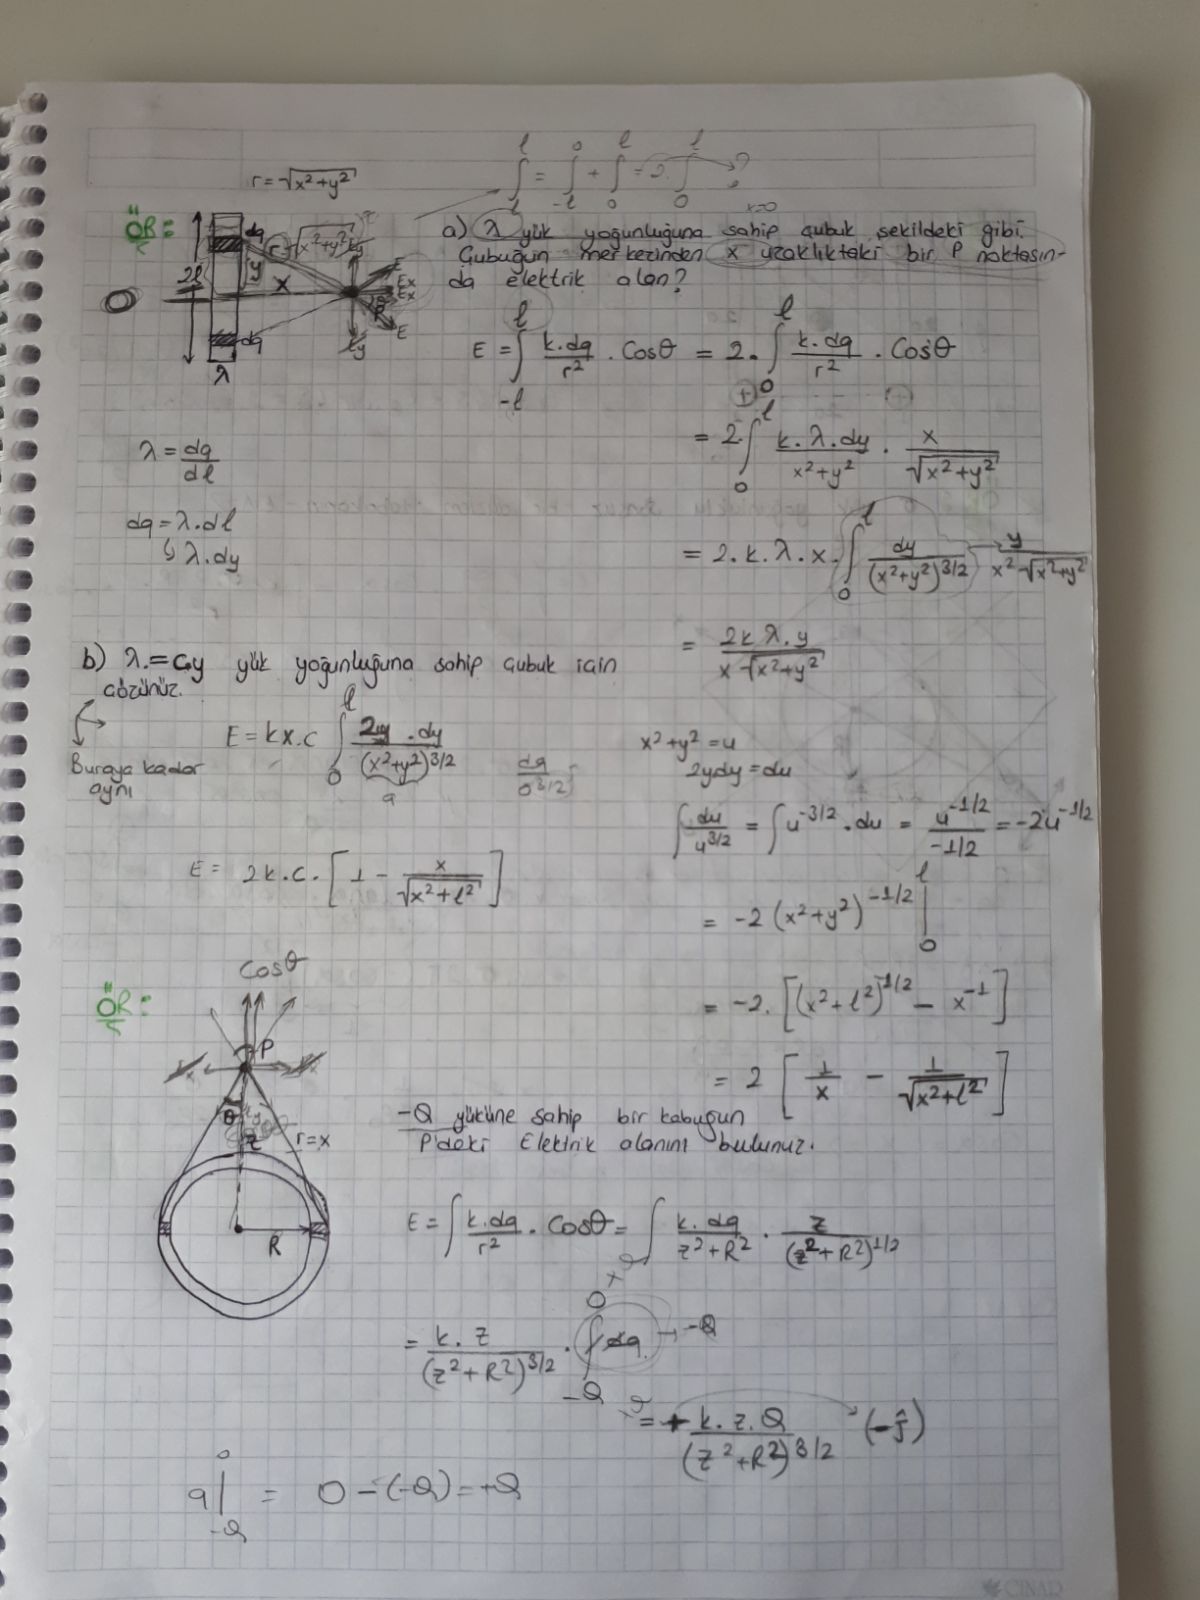 ∫_l^l = ∫_-l^0 + ∫_0^l = 2. ∫_0^l ?
r = √(x²+y²)
x=0
ÖR:
a) λ yük yoğunluğuna sahip çubuk şekildeki gibi.
Çubuğun merkezinden x uzaklıktaki bir P noktasın-
da elektrik alan?
dq
r √(x²+y²)
2l
y
x
E
Ex
Ex
E
dq
λ
E = ∫_-l^l k.dq/r² . Cosθ = 2. ∫_0^l k.dq/r² . Cosθ
λ = dq/dl
= 2 ∫_0^l k.λ.dy/x²+y² . x/√(x²+y²)
dq = λ.dl
↳ λ.dy
= 2.k.λ.x. ∫_0^l dy/(x²+y²)^3/2 → y/x²√(x²+y²)
= 2kλ.y/x√(x²+y²)
b) λ.=cy yük yoğunluğuna sahip çubuk için
çözünüz.
Buraya kadar
aynı
E = kx.c ∫_0^l 2y.dy/(x²+y²)^3/2
x²+y² = u
2ydy = du
∫ du/u^3/2 = ∫ u^-3/2 . du = u^-1/2/-1/2 = -2u^-1/2
E = 2k.c. [1 - x/√(x²+l²)]
= -2 (x²+y²)^-1/2 |_0^l
= -2. [(x²+l²)^1/2 - x^-1]
= 2 [1/x - 1/√(x²+l²)]
ÖR:
Cosθ
P
θ
z
r=x
R
-Q yüküne sahip bir kabuğun
P'deki Elektrik alanını bulunuz.
E = ∫ k.dq/r² . Cosθ = ∫ k.dq/z²+R² . z/(z²+R²)^1/2
= k.z/(z²+R²)^3/2 . ∫_-Q^0 dq → -Q
= + k.z.Q/(z²+R²)^3/2 (-ĵ)
q |_-Q^0 = 0 - (-Q) = +Q
ÇINAR